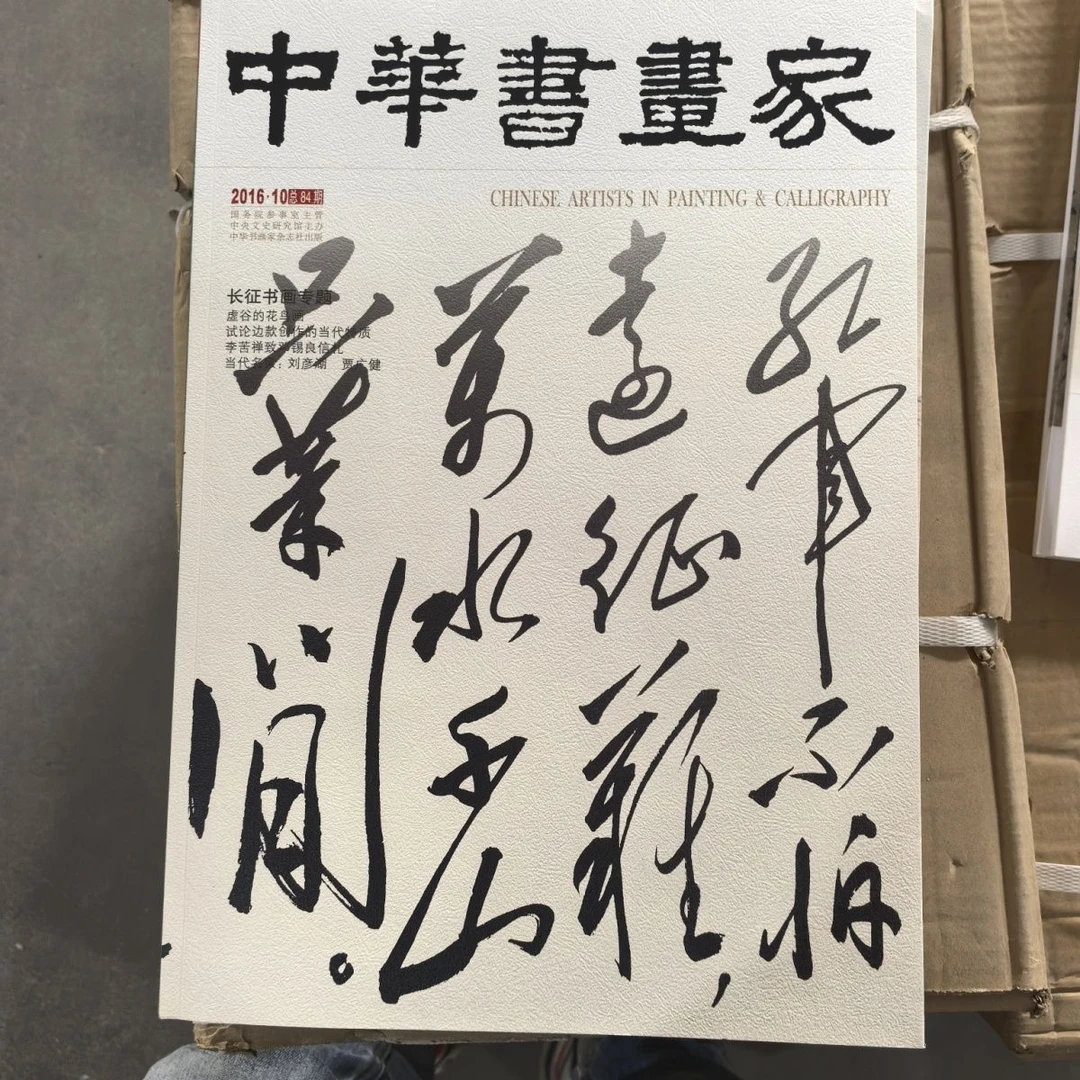 中華書畫家
2016·10 总84期
CHINESE ARTISTS IN PAINTING & CALLIGRAPHY
国务院参事室主管
中央文史研究馆主办
中华书画家杂志社出版
长征书画专题
虚谷的花鸟画
试论边款创作的当代特质
李苦禅致 锡良信札
当代名家：刘彦湖 贾广健
紅軍不怕
遠征難，
萬水千山
只等閒。